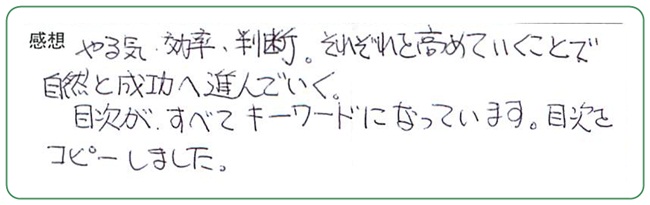 感想 やる気、効率、判断。それぞれを高めていくことで
自然と成功へ進んでいく。
目次が、すべてキーワードになっています。目次を
コピーしました。